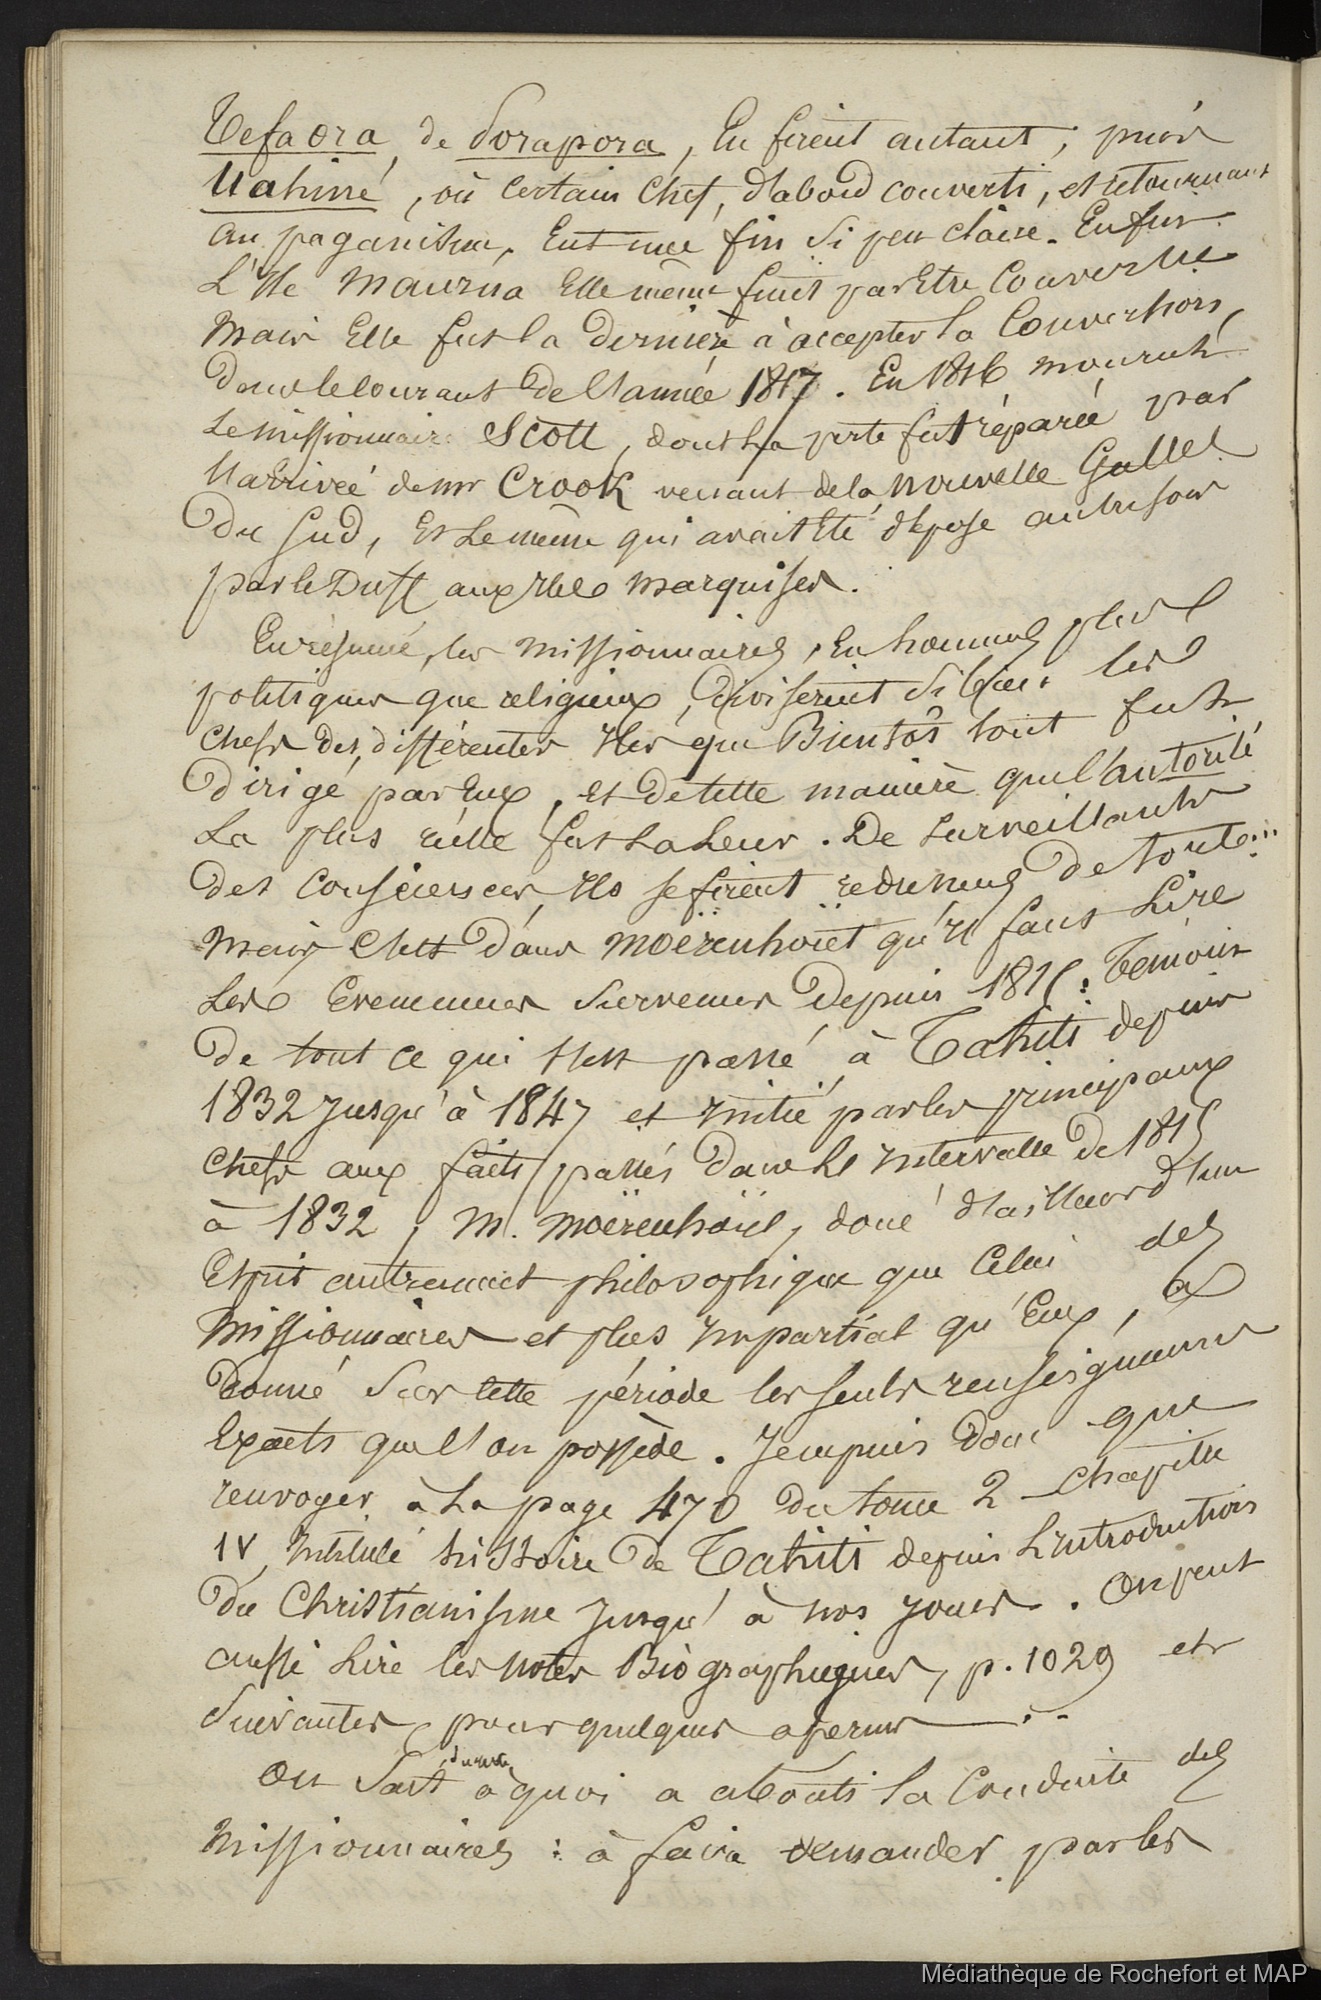 Tefaora, de Borapora, En firent autant ; puis
Uahiné, où certain chef, d'abord converti, et retournant
au paganisme, Eut une fin si peu claire. Enfin
L'Ile Maurua Elle même finit par Etre Convertie
Mais Elle fut la dernière à accepter la Conversion,
dans le courant de l'année 1817. En 1816 mourut
Le missionnaire Scott, dont la perte fut réparée par
l'arrivée de mr Crook venant de la nouvelle Galles
Du Sud, Et Le même qui avait Eté déposé autrefois
par le Duff aux Iles Marquises.
En résumé, les Missionnaires, En hommes plus
politiques que religieux, divisèrent si bien les
chefs des différentes Iles que Bientôt tout fut
Dirigé par Eux, et de telle manière que l'autorité
La plus réelle fut La Leur. De surveillants
des consciences, Ils se firent redresseurs de torts...
Mais C'est dans Moërenhoüet qu'il faut Lire
Les Evenements survenus depuis 1815 : Témoin
De tout ce qui s'est passé à Tahiti depuis
1832 jusqu'à 1847 et initié par les principaux
chefs aux faits passés dans L'Intervalle de 1815
à 1832, M. Moërenhoüt, doué d'ailleurs d'un
Esprit autrement philosophique que Celui des
Missionnaires et plus impartial qu'Eux, a
Donné sur cette période les seuls renseignements
Exacts que l'on possède. Je ne puis donc que
renvoyer à La page 470 du tome 2 - chapitre
IV, Intitulé histoire de Tahiti depuis L'introduction
Du Christianisme jusqu'à nos jours. On peut
aussi Lire les Notes Biographiques, p. 1029 et
Suivantes, pour quelques aperçus ...
du reste
On Sait à quoi a abouti la Conduite des
Missionnaires : à faire demander par les
Médiathèque de Rochefort et MAP